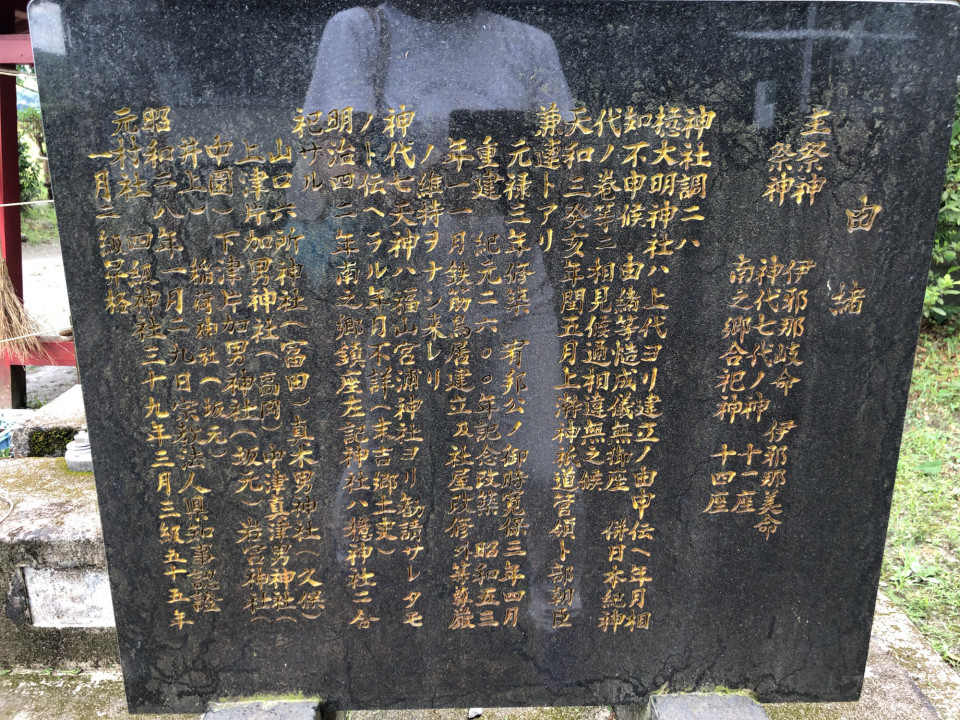 由緒
主祭神 伊邪那岐命 伊邪那美命
祭神 神代七代ノ神 十一座
南之郷合祀神 十四座
神社調ニハ
檍大明神社ハ上代ヨリ建立ノ由申伝ヘ年月相
知不申候 由緒等慥成儀無御座 併日本紀神
代ノ巻等ニ相見候通相違無之候
天和三癸亥年閏五月上澣神祇道管領卜部朝臣
兼連トアリ
元禄三年修築 宥邦公ノ御時寛保三年四月
重建 紀元二六〇〇年記念改築 昭和五三
年一一月鉄筋鳥居建立及社屋改修外等尊厳
ノ維持ヲナシ来レリ
神代七天神ハ福山宮浦神社ヨリ勧請サレタモ
ノト伝ヘラル年月不詳(末吉郷土史)
明治四二年南之郷鎮座左記神社八檍神社ニ合
祀サル
山口六所神社(富田)真木男神社(久保)
上津片加男神社(高岡)中津直津男神社(
中園)下津片加男神社(坂元)岩宮神社(
井上)稲荷神社(坂元)
昭和二八年一月二九日宗教法人県知事認證
元村社 四級神社三十九年三月三級五十五年
一月二級昇格